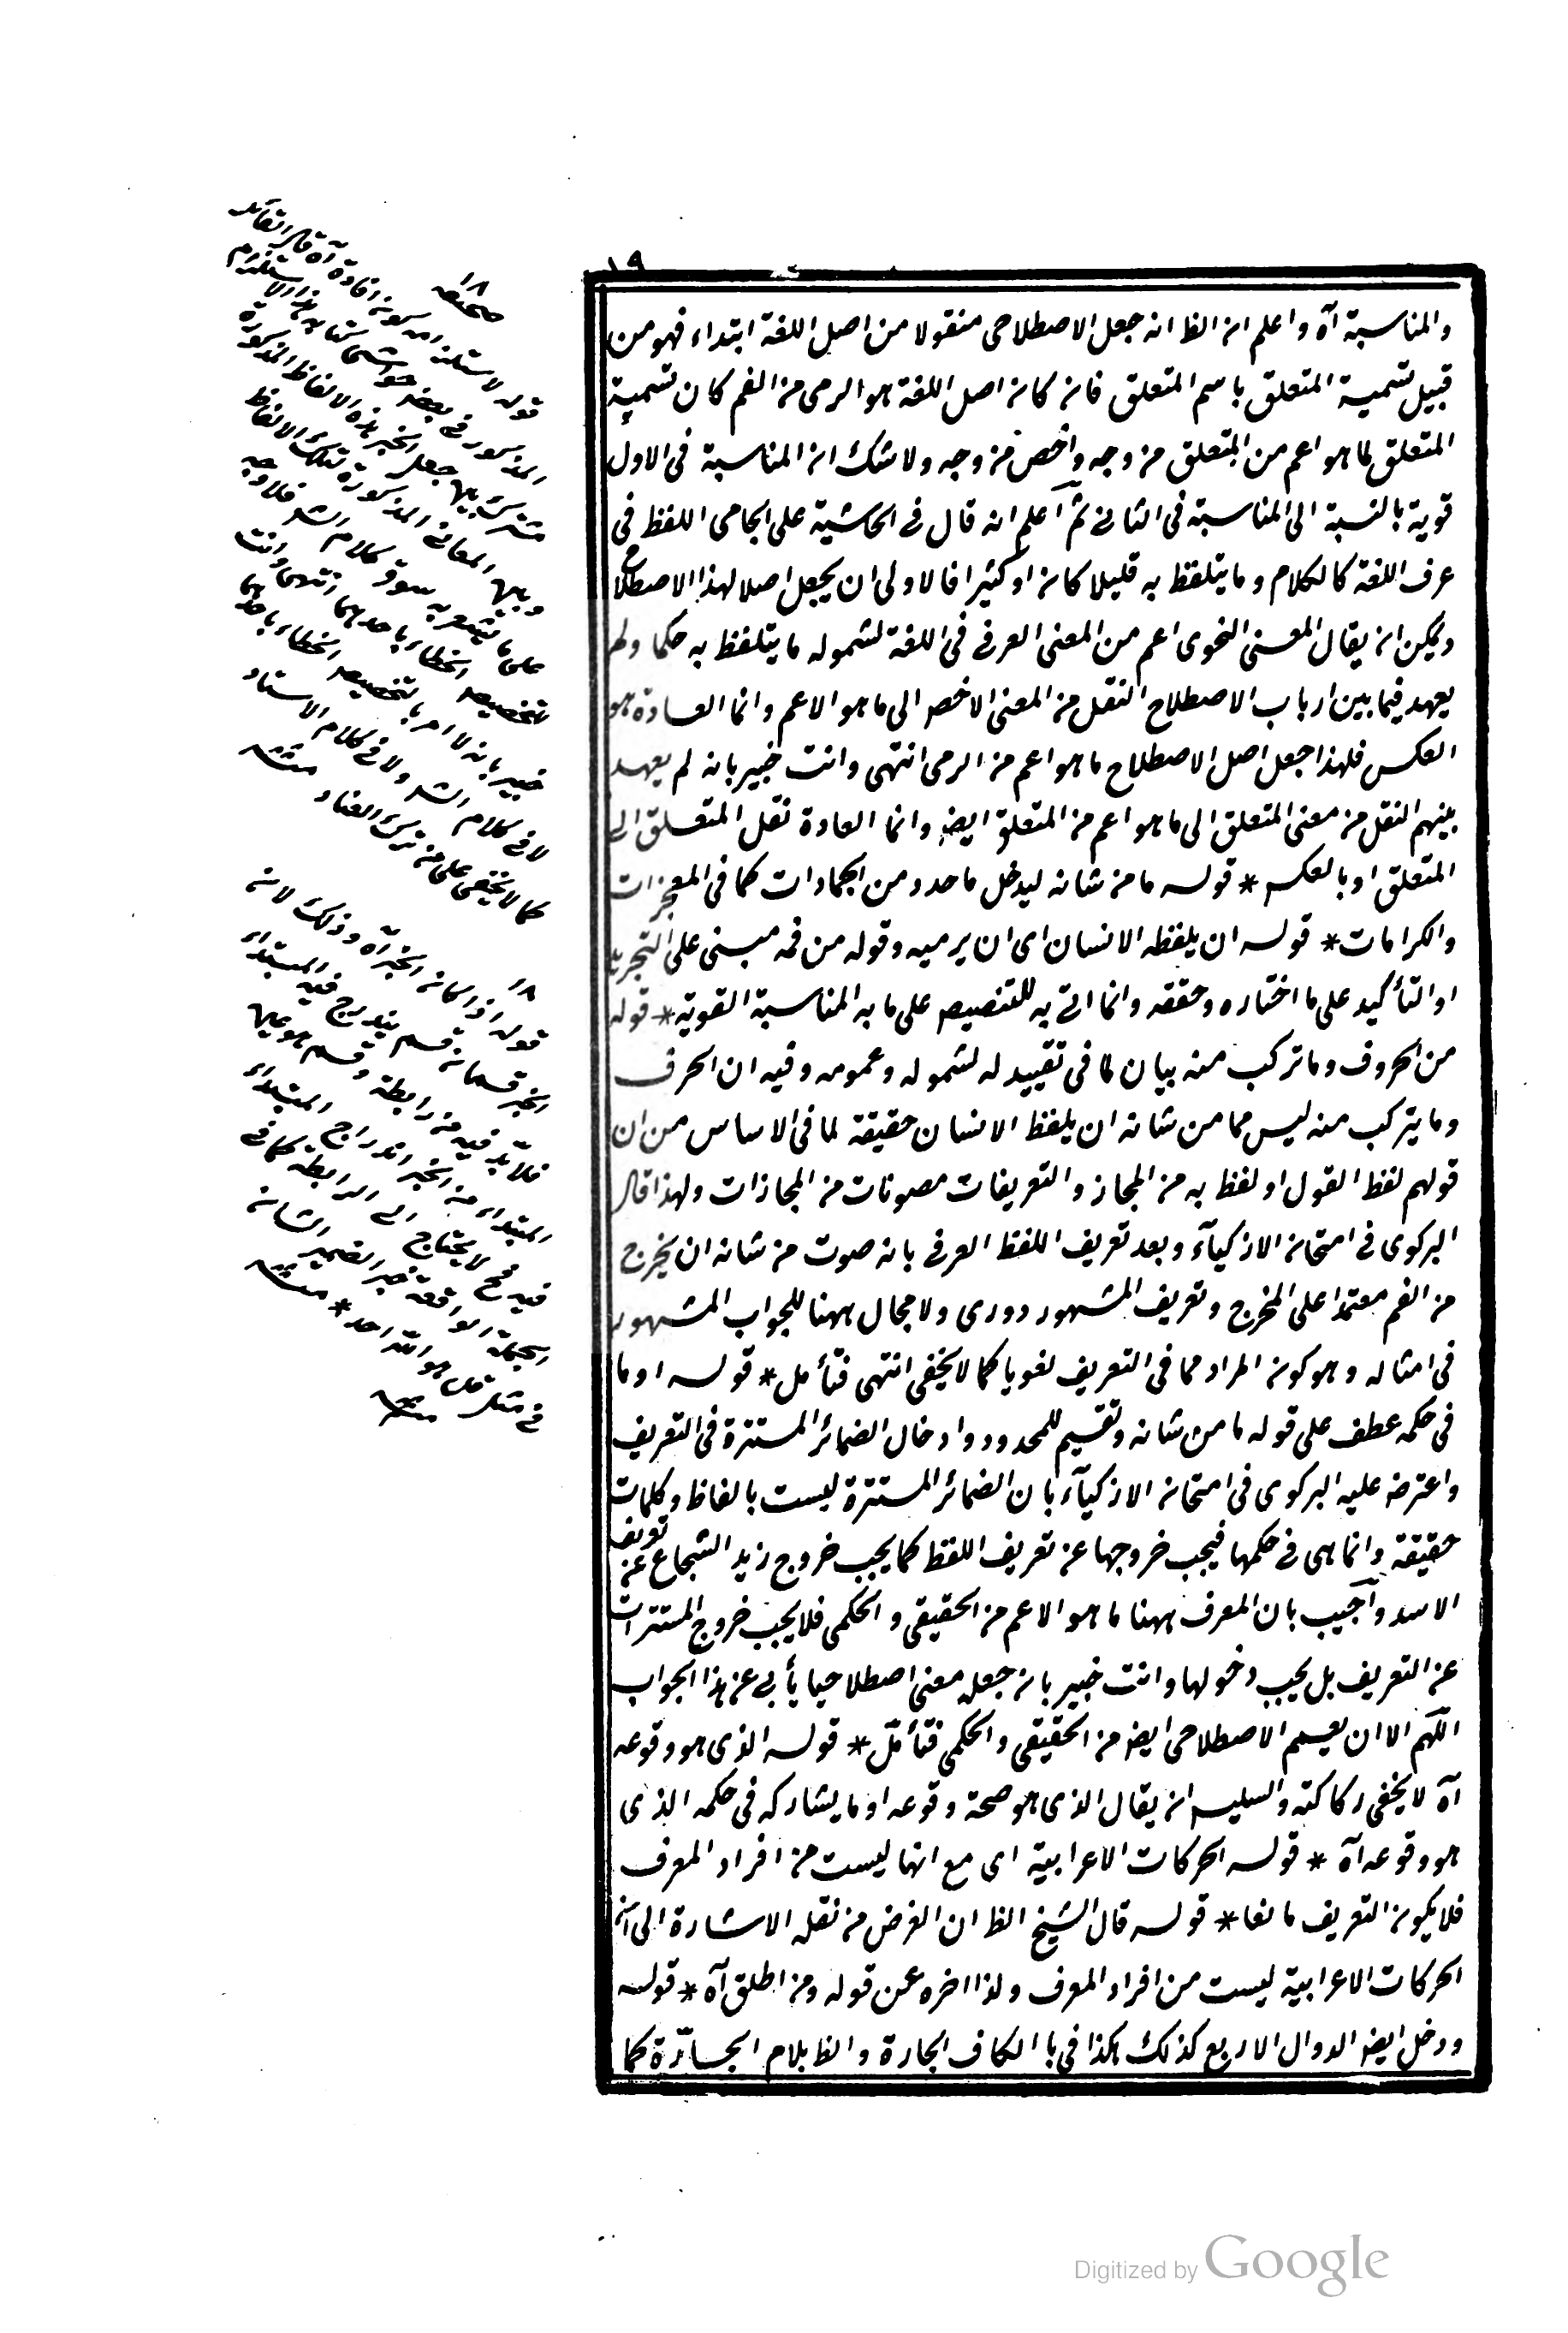 ١٩
والمناسبة آه واعلم ان الظ انه جعل الاصطلاحى منقولا من اصل اللغة ابتداء فهو من
قبيل تسمية المتعلق باسم المتعلق فان كان اصل اللغة هو الرمى من الفم كان تسمية
المتعلق لما هو اعم من المتعلق من وجه واخص من وجه ولا شك ان المناسبة فى الاول
قوية بالنسبة الى المناسبة فى الثانى ثم اعلم انه قال فى الحاشية على الجامى اللفظ فى
عرف اللغة كالكلام وما يتلفظ به قليلا كان او كثيرا فالاولى ان يجعل اصلا لهذا الاصطلاح
ويمكن ان يقال المعنى النحوى اعم من المعنى العرفى فى اللغة لشموله ما يتلفظ به حكما ولم
يعهد فيما بين ارباب الاصطلاح النقل من المعنى الاخص الى ما هو الاعم وانما العادة هو
العكس فلهذا جعل اصل الاصطلاح ما هو اعم من الرمى انتهى وانت خبير بانه لم يعهد
بينهم النقل من معنى المتعلق الى ما هو اعم من المتعلق ايض وانما العادة نقل المتعلق الى
المتعلق او بالعكس * قوله ما من شانه ليدخل ما صدر من الجمادات كما فى المعجزات
والكرامات * قوله ان يلفظه الانسان اى ان يرميه وقوله من فمه مبنى على التجريد
او التأكيد على ما اختاره وحققه وانما اتى به للتنصيص على ما به المناسبة القوية * قوله
من الحروف وما تركب منه بيان لما فى تقييد له لشموله وعمومه وفيه ان الحرف
وما يتركب منه ليس مما من شانه ان يلفظ الانسان حقيقة لما فى الاساس من ان
قولهم لفظ القول او لفظ به من المجاز والتعريفات مصونات من المجازات ولهذا قال
البركوى فى امتحان الاذكيآء وبعد تعريف اللفظ العرفى بانه صوت من شانه ان يخرج
من الفم معتمدا على المخرج وتعريف المشهور دورى ولا مجال ههنا للجواب المشهور
فى امثاله وهو كون المراد مما فى التعريف لغويا كما لا يخفى انتهى فتأمل * قوله او ما
فى حكمه عطف على قوله ما من شانه وتقسيم للمحدود وادخال الضمائر المستترة فى التعريف
واعترض عليه البركوى فى امتحان الاذكيآء بان الضمائر المستترة ليست بالفاظ وكلمات
حقيقة وانما هى فى حكمها فيجب خروجها عن تعريف اللفظ كما يجب خروج زيد الشجاع عن تعريف
الاسد وأجيب بان المعرف ههنا ما هو الاعم من الحقيقى والحكمى فلا يجب خروج المستترات
عن التعريف بل يجب دخولها وانت خبير بان جعله معنى اصطلاحيا يأبى عن هذا الجواب
اللهم الا ان يعمم الاصطلاحى ايض من الحقيقى والحكمى فتأمل * قوله الذى هو وقوعه
آه لا يخفى ركاكته والسليم ان يقال الذى هو صحة وقوعه او ما يشاركه فى حكمه الذى
هو وقوعه آه * قوله الحركات الاعرابية اى مع انها ليست من افراد المعرف
فلا يكون التعريف مانعا * قوله قال الشيخ الظ ان الغرض من نقله الاشارة الى ان
الحركات الاعرابية ليست من افراد المعرف ولذا اخره عن قوله ومن اطلق آه * قوله
ودخل ايض الدوال الاربع كذلك هكذا فى با الكاف الجارة والظ بلام الجارّة كما
١٨
صحيفه
المذكور فى بعض حواشى
لا فى كلام الش ولا فى كلام الاستاد
كما لا يخفى على من ترك العناد منه
١٨
قوله اذا كان الخبر آه وذلك لان
الخبر قسمان قسم يندرج فيه المبتداء
فلا بد فيه من رابطة وقسم هو عينها
المبتداء من الخبر اندراج المبتداء
فيه فح لا يحتاج الى الرابطة كما فى
الجملة الواقعة خبر الضمير الشان
فى مثل قل هو الله احد * منه